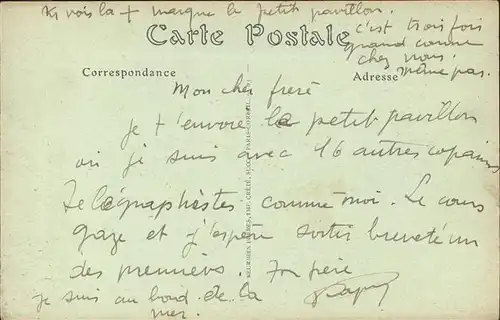 tu vois la + marque le petit pavillon.
c'est trois fois
grand comme
chez nous.
même pas.
Carte Postale
Correspondance
Adresse
Mon cher frère
je t'envoie le petit pavillon
ou je suis avec 16 autres copains
Télégraphistes comme moi. Le cours
gaze et j'espère sortir breveté un
des premiers. Ton frère
je suis au bord de la
mer.